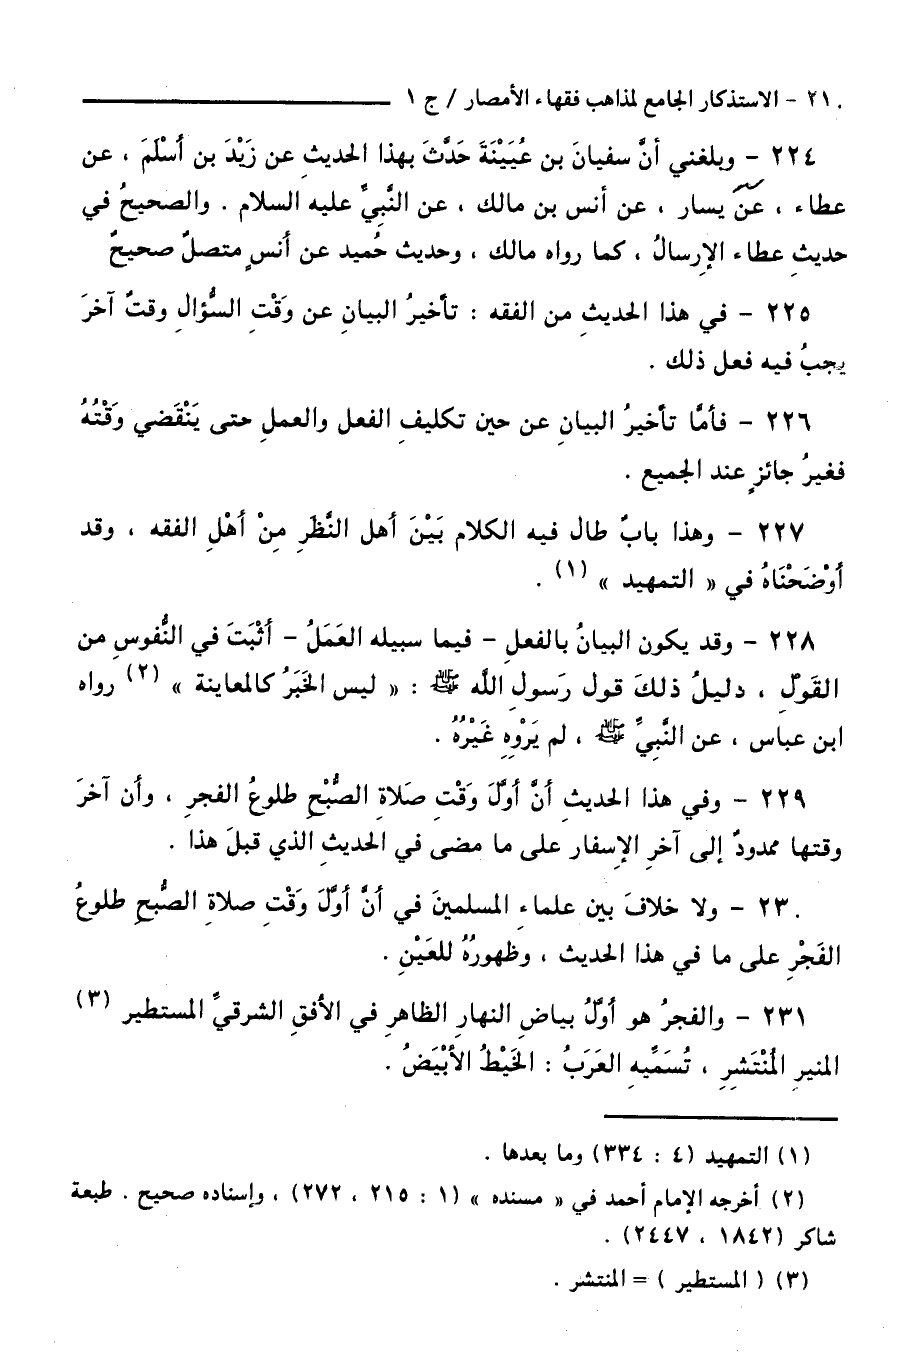 ٢١٠ - الاستذكار الجامع لمذاهب فقهاء الأمصار / ج ١
٢٢٤ - وبلغني أنَّ سفيانَ بن عُيَيْنَةَ حَدَّثَ بهذا الحديثِ عن زَيْدَ بن أَسْلَمَ ، عن
عطاء ، عَنْ يسار ، عن أنس بن مالك ، عن النَّبِيِّ عليه السلام . والصحيحُ في
حديثِ عطاء الإرسالُ ، كما رواه مالك ، وحديث حُميد عن أنسٍ متصلٌ صحيحٌ
٢٢٥ - في هذا الحديثِ من الفقه : تأخيرُ البيانِ عن وَقْتِ السؤالِ وقتٌ آخرَ
يجبُ فيه فعل ذلك .
٢٢٦ - فأمَّا تأخيرُ البيانِ عن حين تكليفِ الفعل والعملِ حتى يَنْقَضي وَقْتُهُ
فغيرُ جائزٍ عند الجميع .
٢٢٧ - وهذا بابٌ طال فيه الكلام بَيْنَ أهل النَّظَرِ مِنْ أهْلِ الفقه ، وقد
أوْضَحْنَاهُ في « التمهيد » (١) .
٢٢٨ - وقد يكون البيانُ بالفعلِ - فيما سبيله العَمَلُ - أثْبَتَ في النُّفوسِ من
القَوْلِ ، دليلُ ذلكَ قول رَسولِ اللَّه ﷺ : « ليس الخَبَرُ كالمعاينة » (٢) رواه
ابن عباس ، عن النَّبِيِّ ﷺ ، لم يَرْوِهِ غَيْرُهُ .
٢٢٩ - وفي هذا الحديثِ أنَّ أوَّلَ وَقْتِ صَلاةِ الصُّبْحِ طلوعُ الفجرِ ، وأن آخرَ
وقتها ممدودٌ إلى آخرِ الإسفار على ما مضى في الحديثِ الذي قبلَ هذا .
٢٣٠ - ولا خلافَ بين علماءِ المسلمينَ في أنَّ أوَّلَ وَقْتِ صلاةِ الصُّبحِ طلوعُ
الفَجْرِ على ما في هذا الحديث ، وظهورُهُ للعَيْنِ .
٢٣١ - والفجرُ هو أوَّلُ بياضِ النهارِ الظاهرِ في الأفقِ الشرقيِّ المستطير (٣)
المنيرِ المُنْتَشرِ ، تُسَمِّيهِ العَرَبُ : الخَيْطُ الأبْيَضُ .
(١) التمهيد (٤ : ٣٣٤) وما بعدها .
(٢) أخرجه الإمام أحمد في « مسنده » (١ : ٢١٥ ، ٢٧٢) ، وإسناده صحيح . طبعة
شاكر (١٨٤٢ ، ٢٤٤٧) .
(٣) ( المستطير ) = المنتشر .